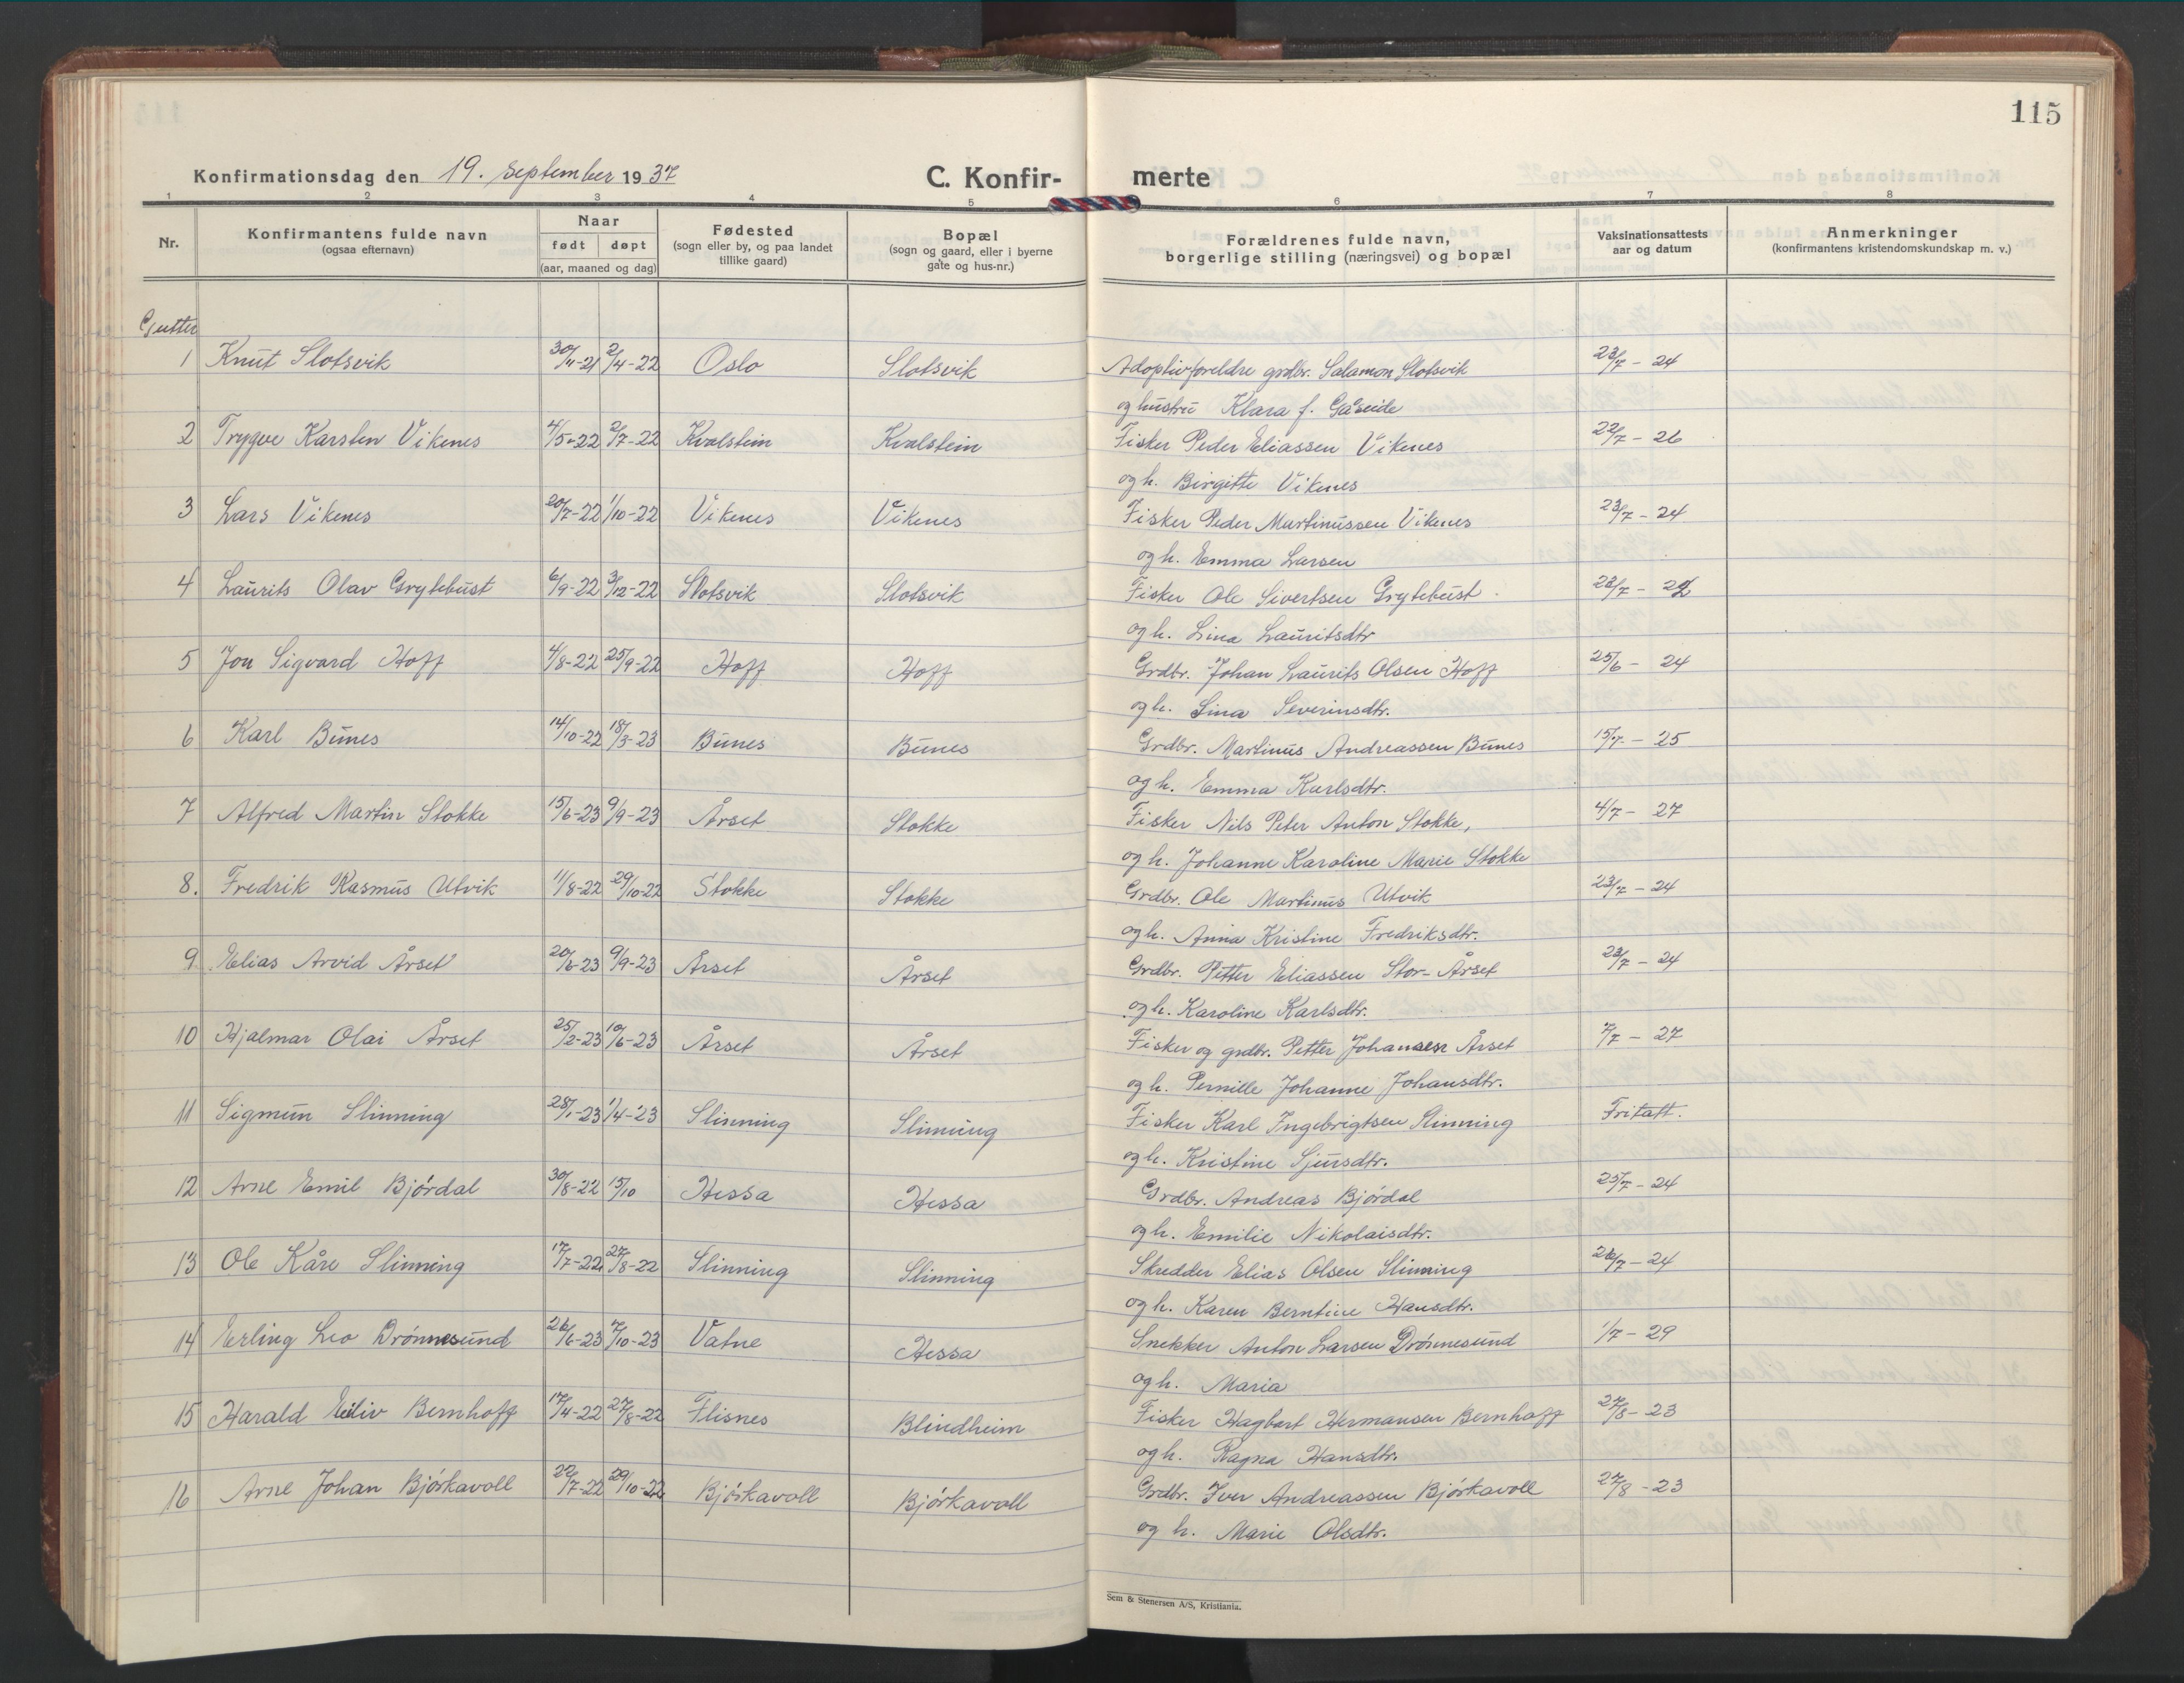 115
Konfirmationsdag den 19. september 1937
C. Konfirmerte
1 2 3 4 5 6 7 8
Nr. | Konfirmantens fulde navn (ogsaa efternavn) | Naar født | døpt (aar, maaned og dag) | Fødested (sogn eller by, og paa landet tillike gaard) | Bopæl (sogn og gaard, eller i byerne gate og hus-nr.) | Forældrenes fulde navn, borgerlige stilling (næringsvei) og bopæl | Vaksinationsattests aar og datum | Anmerkninger (konfirmantens kristendomskundskap m. v.)
Gutter
1 Knut Slotsvik 30/11-21 2/4-22 Oslo Slotsvik Adoptivforeldre grdbr. Salamon Slotsvik 23/7-24
og hustru Klara f. Gåseide
2 Trygve Karsten Vikenes 4/5-22 2/7-22 Kvalstein Kvalstein Fisker Peder Eliassen Vikenes 22/7-26
og h. Birgitte Vikenes
3 Lars Vikenes 20/7-22 1/10-22 Vikenes Vikenes Fisker Peder Martinussen Vikenes 23/7-24
og h. Emma Larsen
4 Laurits Olav Grytebust 6/9-22 3/12-22 Slotsvik Slotsvik Fisker Ole Sivertsen Grytebust 23/7-
og h. Lina Lauritsdtr
5 Jon Sigvard Hoff 4/8-22 25/9-22 Hoff Hoff Grdbr. Johan Laurits Olsen Hoff 25/6-24
og h. Lina Severinsdtr.
6 Karl Bunes 14/10-22 18/3-23 Bunes Bunes Grdbr. Martinus Andreassen Bunes 15/7-25
og h. Emma Karlsdtr.
7 Alfred Martin Stokke 15/6-23 9/9-23 Årset Stokke Fisker Nils Peter Anton Stokke, 4/7-27
og h. Johanne Karoline Marie Stokke
8. Fredrik Rasmus Utvik 11/8-22 29/10-22 Stokke Stokke Grdbr. Ole Martinus Utvik 23/7-24
og h. Anna Kristine Fredriksdtr.
9 Elias Arvid Årset 20/6-23 9/9-23 Årset Årset Grdbr. Petter Eliassen Stor-Årset 23/7-24
og h. Karoline Karlsdtr.
10 Hjalmar Olai Årset 25/2-23 10/6-23 Årset Årset Fisker og grdbr. Petter Johansen Årset 7/7-27
og h. Pernille Johanne Johansdtr.
11 Sigmun Slinning 28/1-23 1/4-23 Slinning Slinning Fisker Karl Ingebrigtsen Slinning Fritatt.
og h. Kristine Sjursdtr.
12 Arne Emil Bjórdal 30/8-22 15/10 Hessa Hessa Grdbr. Andreas Bjórdal 25/7-24
og h. Emilie Nikolaisdtr.
13 Ole Kåre Slinning 17/7-22 27/8-22 Slinning Slinning Skredder Elias Olsen Slinning 26/7-24
og h. Karen Berntine Hansdtr.
14 Erling Leo Drónnesund 26/6-23 7/10-23 Vatne Hessa Snekker Anton Larsen Drónnesund 1/7-29
og h. Maria
15 Harald Eiliv Bernhoff 17/4-22 27/8-22 Flisnes Blindheim Fisker Hagbart Hermansen Bernhoff 27/8-23
og h. Ragna Hansdtr.
16 Arne Johan Bjórkavoll 22/7-22 29/10-22 Bjórkavoll Bjórkavoll Grdbr. Iver Andreassen Bjórkavoll 27/8-23
og h. Marie Olsdtr.
Sem & Stenersen A/S, Kristiania.